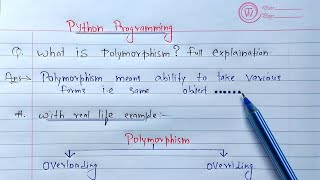 Python Programming
Q. What is Polymorphism? full explaination.
Ans→ Polymorphism means ability to take various
forms i.e same object ......
#. with real life example:-
Polymorphism
Overloading Overriding